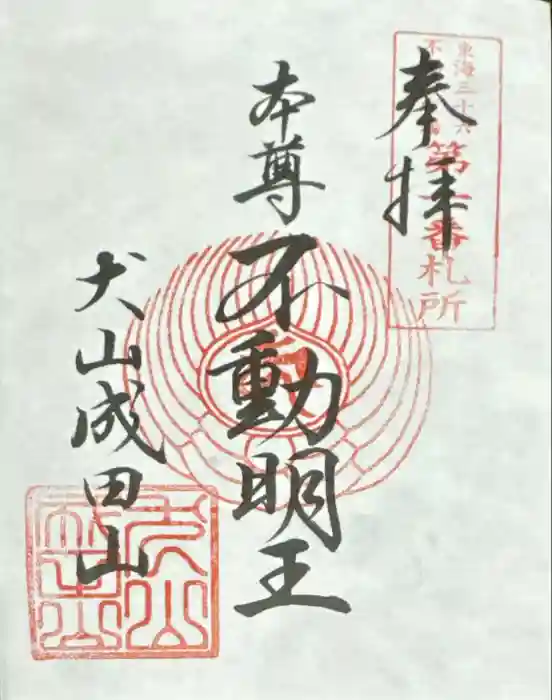 東海三十六
不
第一番札所
奉拝
本尊
不動明王
犬山成田山